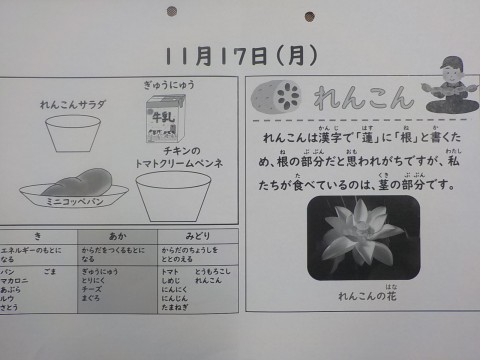 11月17日(月)
ぎゅうにゅう
れんこんサラダ
牛乳
チキンの
トマトクリームペンネ
ミニコッペパン
き あか みどり
エネルギーのもとに
なる
からだをつくるもとに
なる
からだのちょうしを
ととのえる
パン ごま
マカロニ
あぶら
ルウ
さとう
ぎゅうにゅう
とりにく
チーズ
まぐろ
トマト とうもろこし
しめじ れんこん
にんにく
にんじん
たまねぎ
れんこん
かんじ はす ね か
れんこんは漢字で「蓮」に「根」と書くた
ね ぶぶん おも わたし
め、根の部分だと思われがちですが、私
た くき ぶぶん
たちが食べているのは、茎の部分です。
はな
れんこんの花